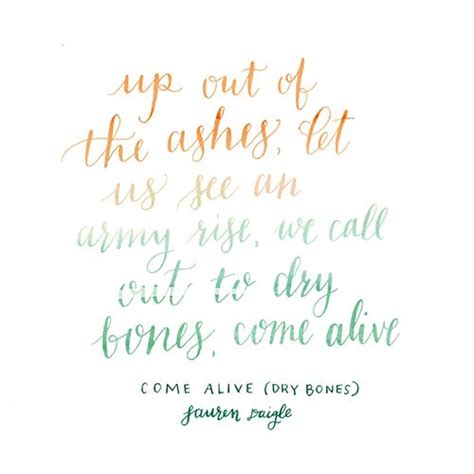 up out of
the ashes, let
us see an
army rise, we call
out to dry
bones, come alive
COME ALIVE (DRY BONES)
lauren daigle